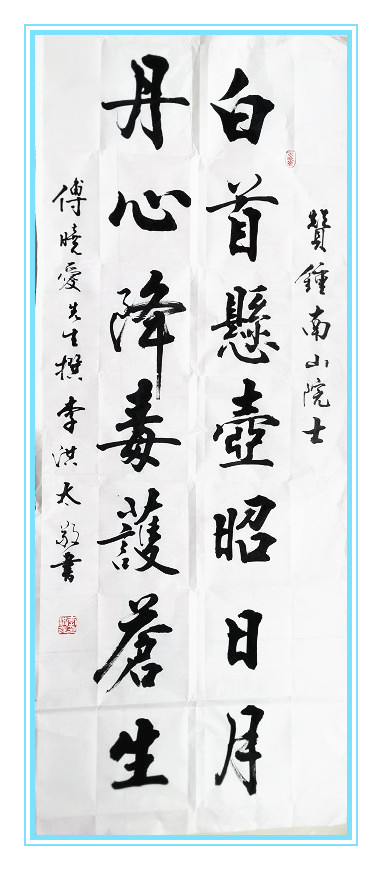 贊鍾南山院士
白首懸壺昭日月
丹心降毒護蒼生
傅曉愛先生撰李洪太敬書